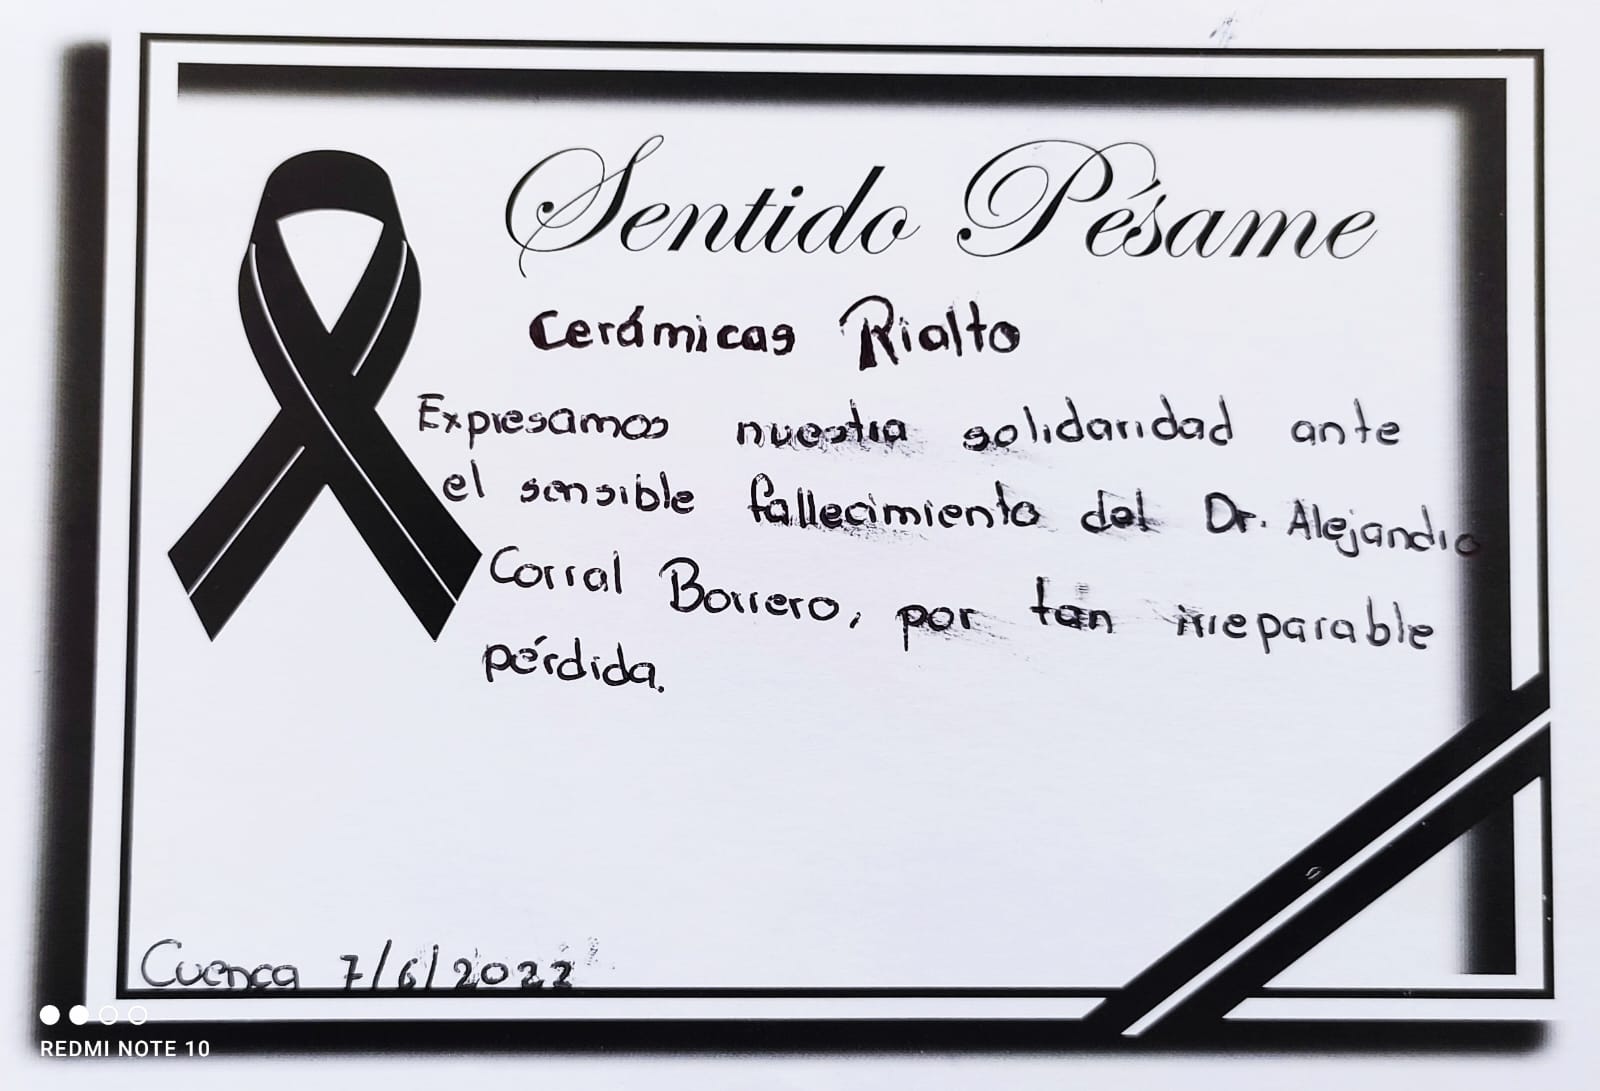 Sentido Pésame
Cerámicas Rialto
Expresamos nuestra solidaridad ante
el sensible fallecimiento del Dr. Alejandro
Corral Borrero, por tan irreparable
pérdida.
Cuenca 7/6/2022
REDMI NOTE 10